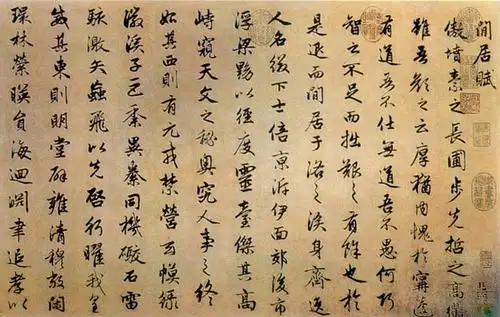 閒居賦
傲墳素之長圃步先哲之高衢
雖吾顏之云厚猶内愧於甯蘧
有道吾不仕無道吾不愚何巧
智之不足而拙艱之有餘也於
是退而閒居于洛之涘身齊逸
人名綴下士倍京泝伊面郊後市
浮梁黝以徑度靈臺傑其高
峙窺天文之祕奧究人事之終
始其西則有元戎禁營玄幙綠
徽溪子巨黍異絭同機礮石雷
駭激矢蝱飛以先啓行曜我皇
威其東則明堂辟雍清穆敞閑
環林縈暎員海迴淵聿追孝以